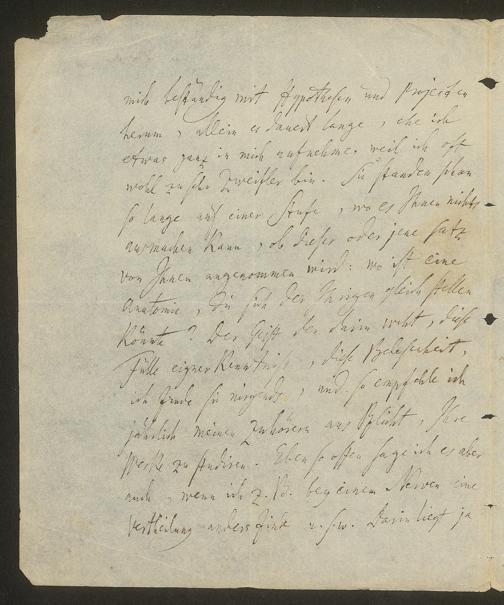 mich beständig mit Hypothesen und Projecten
herum, allein es dauert lange, ehe ich
etwas ganz in mich aufnehme, weil ich oft
wohl zu sehr Zweifler bin. Sie standen schon
so lange auf einer Stufe, wo es Ihnen nichts
ausmachen kann, ob dieser oder jene Satz
von Ihnen angenommen wird: wo ist eine
Anatomie, die sich der Ihrigen gleich stellen
könnte? Der Geist der darin weht, diese
Fülle eigner Kenntniß, diese Belesenheit,
ich finde sie nirgends, und so empfehle ich
jährlich meinen Zuhörern aus Pflicht, Ihre
Werke zu studiren. Eben so offen sage ich es aber
auch, wenn ich z. B. bey einem Nerven eine
Vertheilung anders finde u. s. w. Darin liegt ja